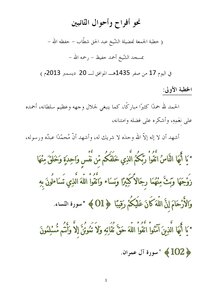 نحو أفراح وأحوال التائبين
( خطبة الجمعة لفضيلة الشيخ عبد الحق شطاب – حفظه الله –
بمسجد الشيخ أحمد حفيظ – رحمه الله –
في اليوم 17 من صفر 1435هـ الموافق لـ 20 ديسمبر 2013م )
الخطبة الأولى:
الحمد لله حمدًا كثيرًا مباركًا، كما ينبغي لجلال وجهه وعظيم سلطانه، أحمده
على نعمه، وأشكره على فضله وامتنانه،
أشهد أن لا إله إلاّ الله وحده لا شريك له، وأشهد أنّ محمّدًا عبدُه ورسوله،
"يَا أَيُّهَا النَّاسُ اتَّقُوا رَبَّكُمُ الَّذِي خَلَقَكُم مِّن نَّفْسٍ وَاحِدَةٍ وَخَلَقَ مِنْهَا
زَوْجَهَا وَبَثَّ مِنْهُمَا رِجَالًا كَثِيرًا وَنِسَاء وَاتَّقُوا اللهَ الَّذِي تَسَاءَلُونَ بِهِ
وَالْأَرْحَامَ إِنَّ اللهَ كَانَ عَلَيْكُمْ رَقِيبًا ﴿01﴾ " سورة النّساء.
"يَا أَيُّهَا الَّذِينَ آمَنُوا اتَّقُوا اللهَ حَقَّ تُقَاتِهِ وَلَا تَمُوتُنَّ إِلَّا وَأَنتُم مُّسْلِمُونَ
﴿102﴾ " سورة آل عمران.
1